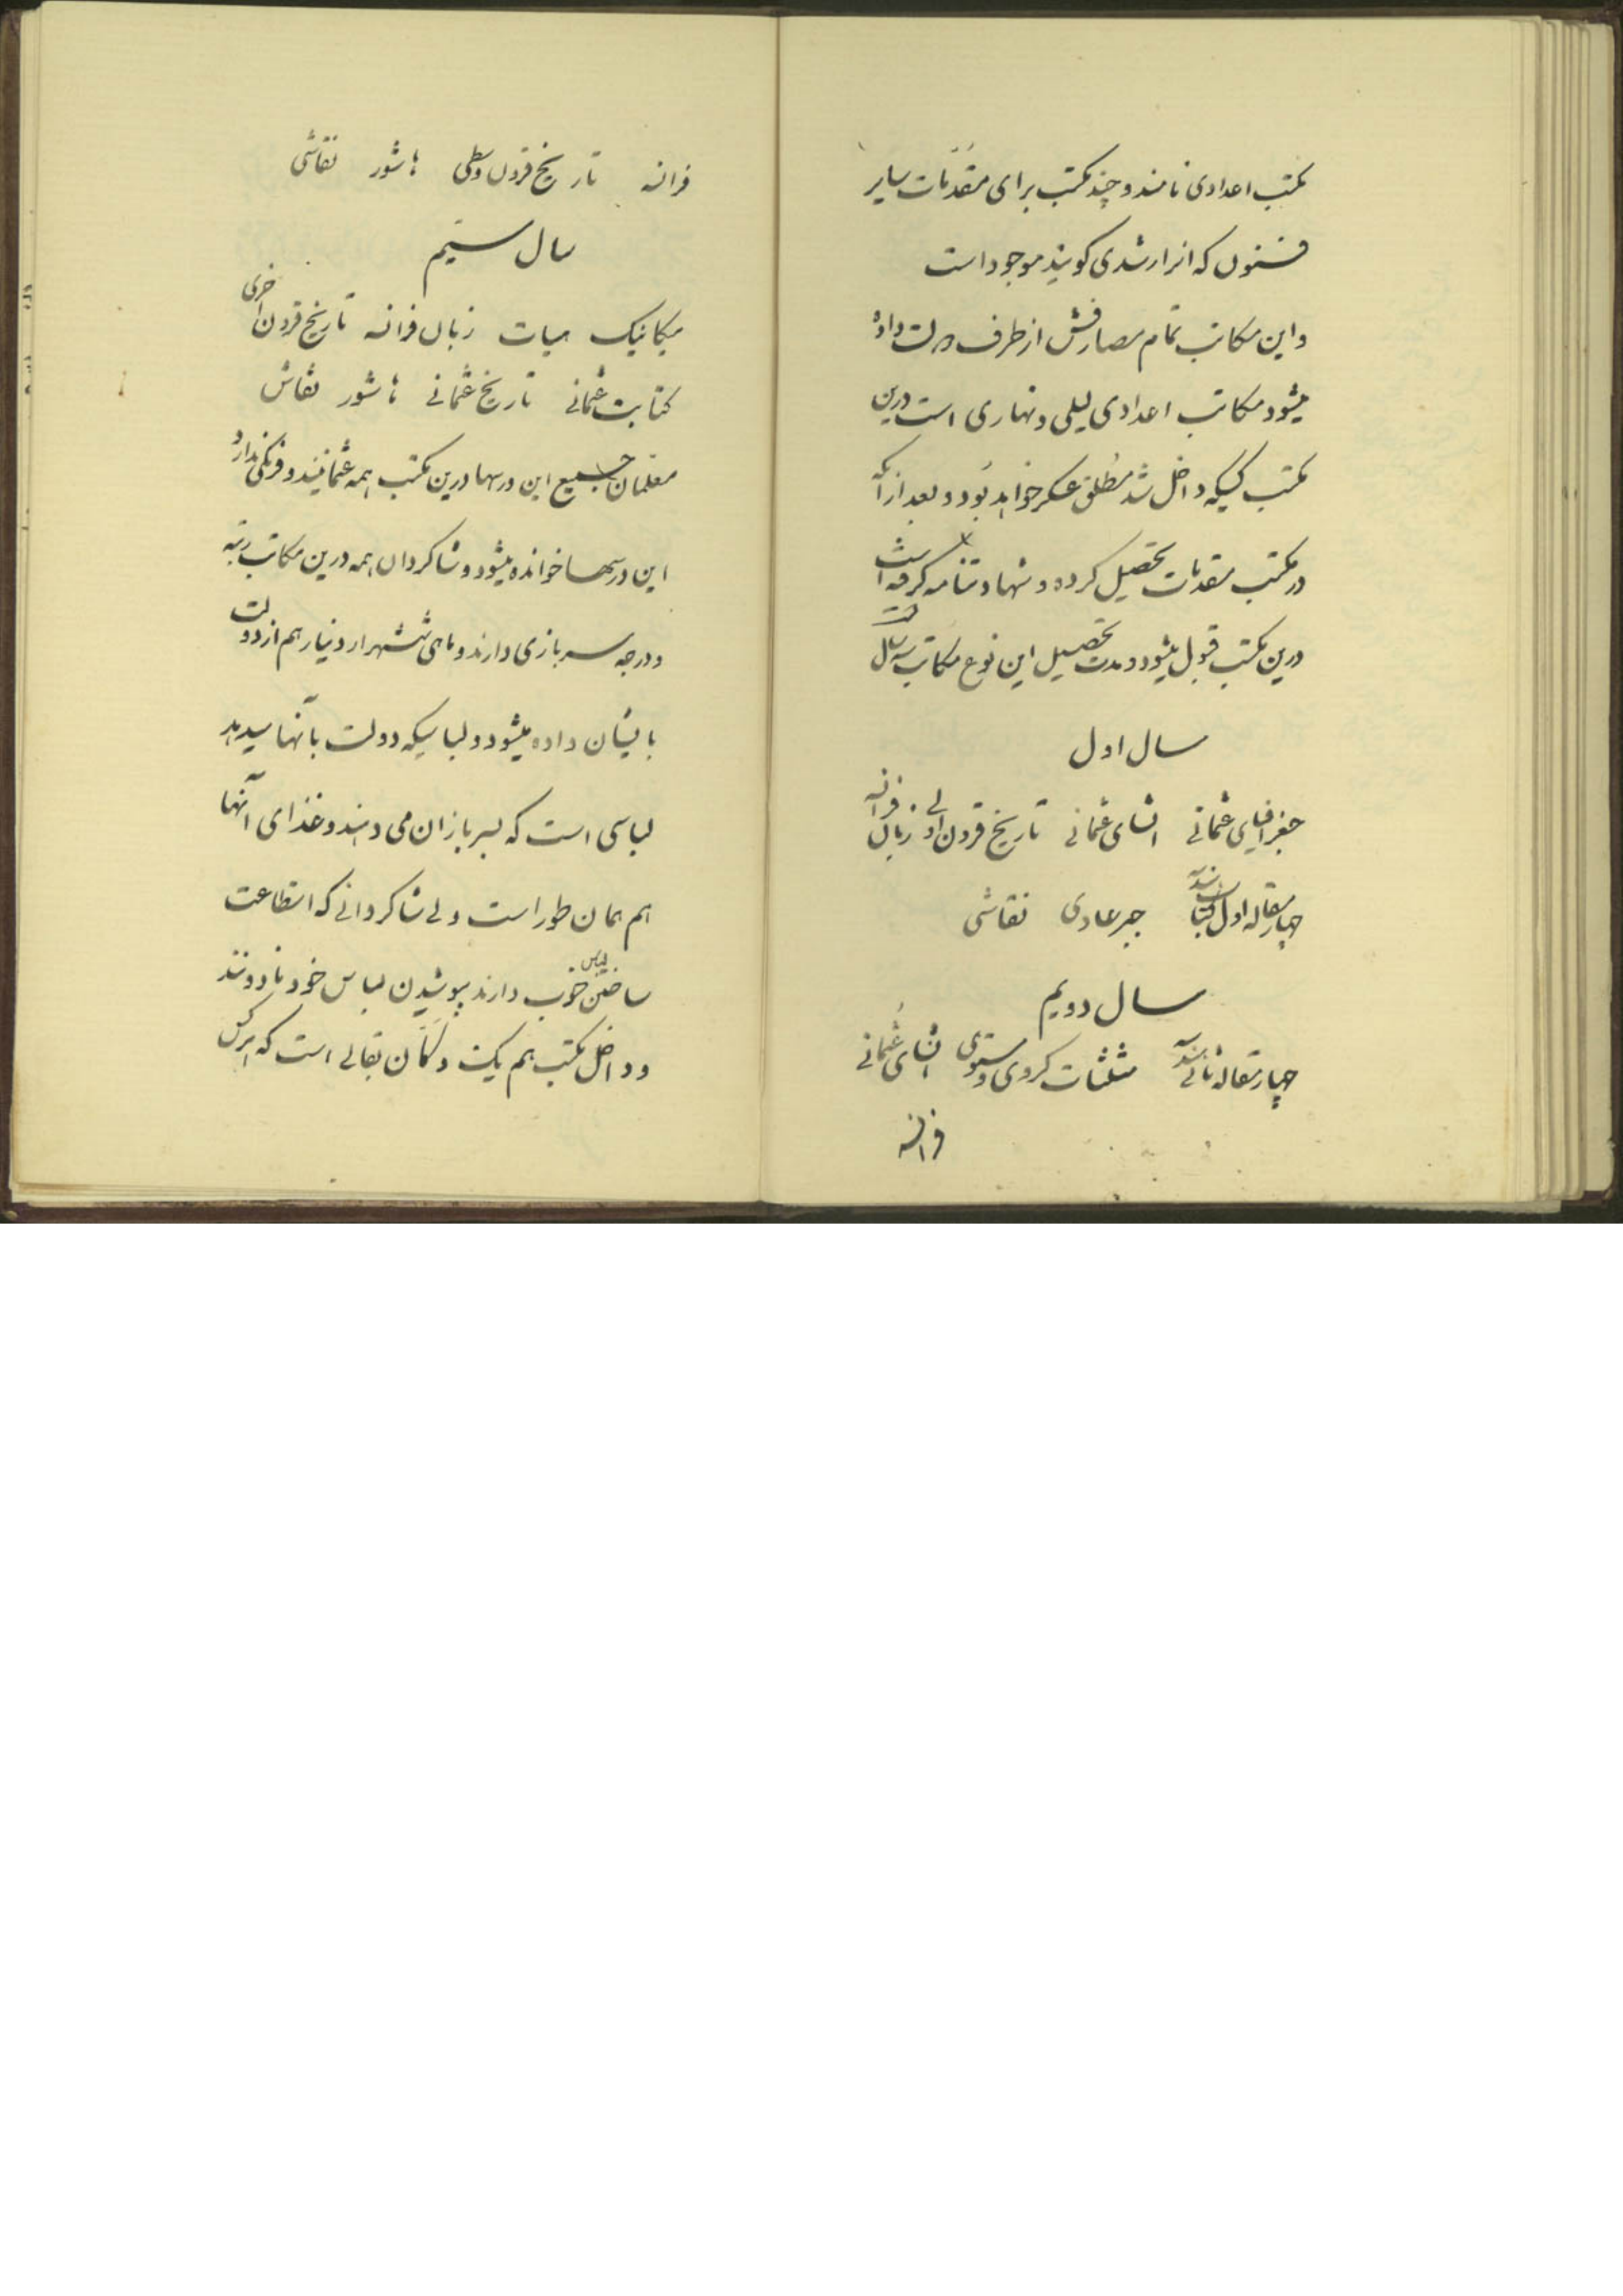 مکتب اعدادی نامند و چند مکتب برای مقدّمات سایر
فنون که انرا رشدی کویند موجود است
و این مکاتب تمام مصارفش از طرف دولت داده
میشود مکاتب اعدادی لیلی و نهاری است درین
مکتب کسیکه داخل شد مُطلق عسکر خواهد بُود و بعد از آنکه
در مکتب مقدمات تحصیل کرده و شهادتنامه کرفته است
درین مکتب قبول میشود و مدت تحصیل این نوع مکاتب سه سال است
سال اول
جغرافیای عثمانی انشای عثمانی تاریخ قرون اولی زبان فرانسه
چهار مقاله اول کتاب هندسه جبر عادی نقاشی
سال دویم
چهار مقاله ثانی هندسه مثلثات کروی و مستوی انشای عُثمانی
فرانسه
فرانسه تاریخ قرون وسطی ماشور نقاشی
سال سیّم
میکانیک هیات زبان فرانسه تاریخ قرون اخری
کتابت عثمانی تاریخ عثمانی ماشور نقاش
معلمان جمیع این درسها درین مکتب همه عثمانیند و فرنکی ندارد
این درسها خوانده میشود و شاکردان همه درین مکاتب رتبه
و درجه سربازی دارند و ماهی ششهزار دینار هم از دولت
بایشان داده میشود و لباسیکه دولت بآنها میدهد
لباسی است که بسربازان می دهند و غذای آنها
هم همان طور است ولی شاکردانی که استطاعت
ساختن لباس خوب دارند بپوشیدن لباس خود ماذونند
و داخل مکتب هم یک دکّان بقالی است که هرکس